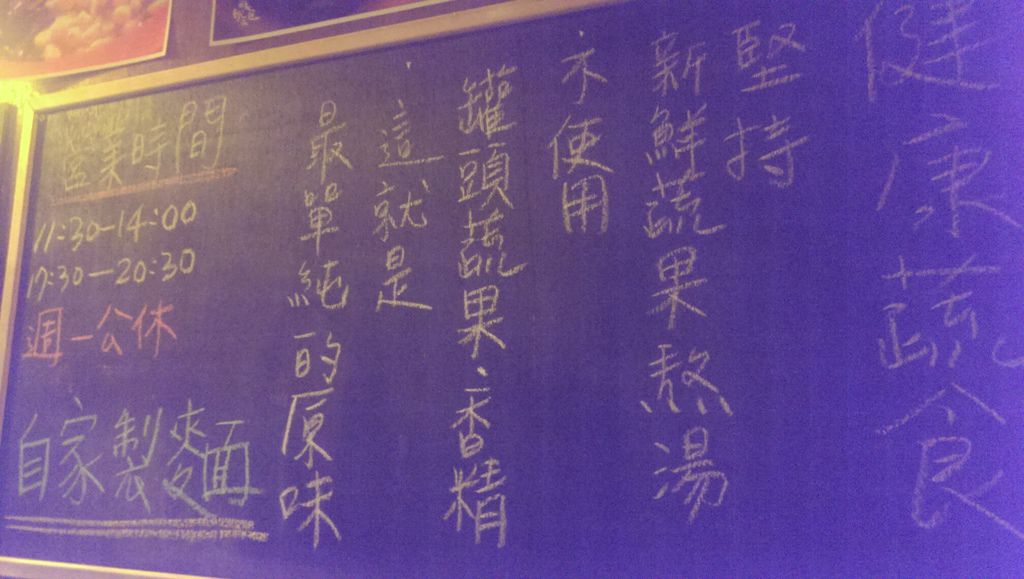 健康蔬食
堅持
新鮮蔬果熬湯
不使用
罐頭蔬果·香精
這就是
最單純的原味
營業時間
11:30-14:00
17:30-20:30
週一公休
自家製麵